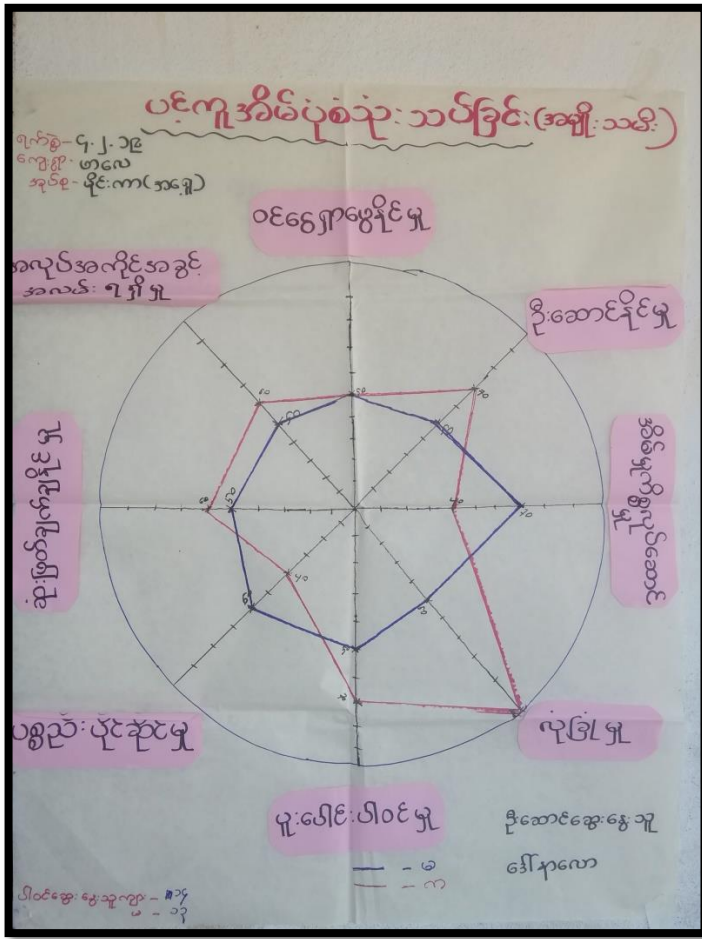 ပင့်ကူအိမ်ပုံစံသုံးသပ်ခြင်း (အမျိုးသမီး)
ရက်စွဲ - ၄.၂.၁၉
ကျေးရွာ - ဟာလေ
အုပ်စု - မိုင်းကာ (အခြေ)
ဝင်ငွေရှာဖွေနိုင်မှု
အလုပ်အကိုင်အခွင့်
အလမ်းရရှိမှု
ဦးဆောင်နိုင်မှု
အိမ်မှုကိစ္စလုပ်ဆောင်
မှု
ဆုံးဖြတ်ချက်ချနိုင်မှု
ပစ္စည်းပိုင်ဆိုင်မှု
လုံခြုံမှု
ပူးပေါင်းပါဝင်မှု
ဦးဆောင်ဆွေးနွေးသူ
ဒေါ်နာလော
- မ
- က
ပါဝင်ဆွေးနွေးသူ ကျား - ၁၄
မ - ၁၃